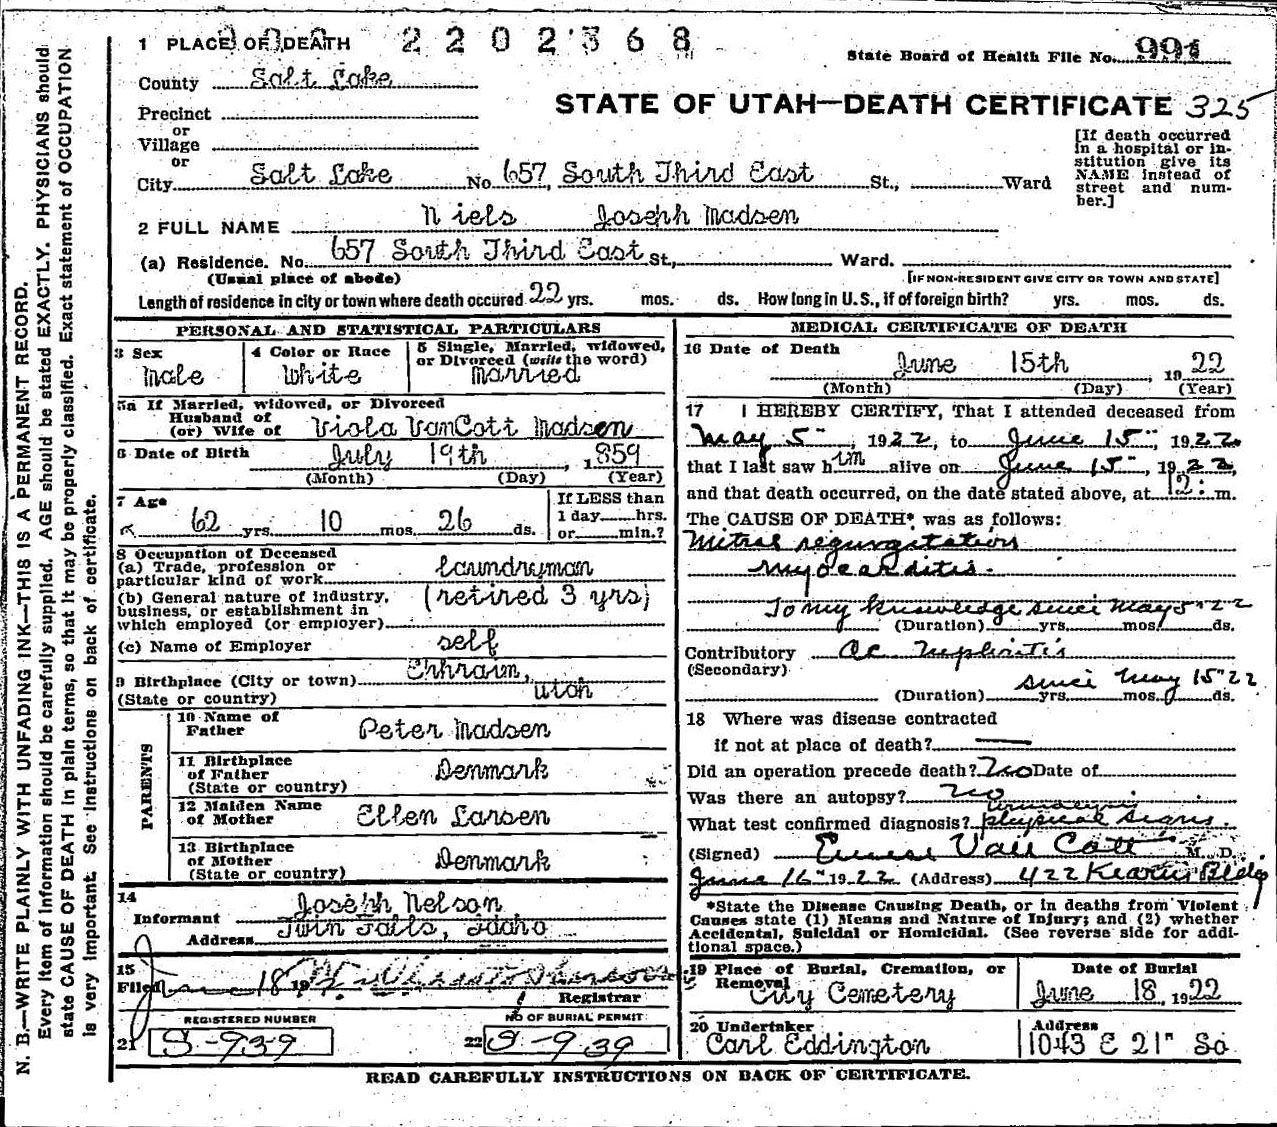 1 PLACE OF DEATH 2202368
State Board of Health File No. 991
County Salt Lake
STATE OF UTAH—DEATH CERTIFICATE 325
Precinct
or
Village
or
City Salt Lake No. 657, South Third East St., Ward
[If death occurred
in a hospital or in-
stitution give its
NAME instead of
street and num-
ber.]
2 FULL NAME Niels Joseph Madsen
(a) Residence. No. 657 South Third East St., Ward.
(Usual place of abode) [IF NON-RESIDENT GIVE CITY OR TOWN AND STATE]
Length of residence in city or town where death occured 22 yrs. mos. ds. How long in U.S., if of foreign birth? yrs. mos. ds.
PERSONAL AND STATISTICAL PARTICULARS
3 Sex
Male
4 Color or Race
White
5 Single, Married, widowed,
or Divorced (write the word)
Married
5a If Married, widowed, or Divorced
Husband of
(or) Wife of Viola VanCott Madsen
6 Date of Birth July 19th, 1859
(Month) (Day) (Year)
7 Age
62 yrs. 10 mos. 26 ds.
If LESS than
1 day hrs.
or min.?
8 Occupation of Deceased
(a) Trade, profession or
particular kind of work laundryman
(b) General nature of industry, (retired 3 yrs)
business, or establishment in
which employed (or employer)
(c) Name of Employer self
9 Birthplace (City or town) Ehhraim,
(State or country) Utah
PARENTS
10 Name of
Father Peter Madsen
11 Birthplace
of Father Denmark
(State or country)
12 Maiden Name
of Mother Ellen Larsen
13 Birthplace
of Mother Denmark
(State or country)
14
Informant Joseph Nelson
Address Twin Falls, Idaho
15
Filed June 18 19
Registrar
REGISTERED NUMBER
21 S-939
NO OF BURIAL PERMIT
22 S-939
MEDICAL CERTIFICATE OF DEATH
16 Date of Death June 15th 1922
(Month) (Day) (Year)
17 I HEREBY CERTIFY, That I attended deceased from
May 5", 1922, to June 15", 1922
that I last saw him alive on June 15", 1922,
and that death occurred, on the date stated above, at 12: m.
The CAUSE OF DEATH* was as follows:
Mitral regurgitation
myocarditis.
To my knowledge since May 5" 22
(Duration) yrs. mos. ds.
Contributory ac Nephritis
(Secondary)
since May 15" 22
(Duration) yrs. mos. ds.
18 Where was disease contracted
if not at place of death? —
Did an operation precede death? No Date of
Was there an autopsy? No
urinalysis
What test confirmed diagnosis? physical signs.
(Signed) Van Cott M. D.
June 16" 1922 (Address) 422 Kearns Bldg
*State the Disease Causing Death, or in deaths from Violent
Causes state (1) Means and Nature of Injury; and (2) whether
Accidental, Suicidal or Homicidal. (See reverse side for addi-
tional space.)
19 Place of Burial, Cremation, or
Removal
City Cemetery
Date of Burial
June 18, 1922
20 Undertaker
Carl Eddington
Address
1043 E 21" So
READ CAREFULLY INSTRUCTIONS ON BACK OF CERTIFICATE.
N. B.—WRITE PLAINLY WITH UNFADING INK—THIS IS A PERMANENT RECORD.
Every item of information should be carefully supplied. AGE should be stated EXACTLY. PHYSICIANS should
state CAUSE OF DEATH in plain terms, so that it may be properly classified. Exact statement of OCCUPATION
is very important. See instructions on back of certificate.